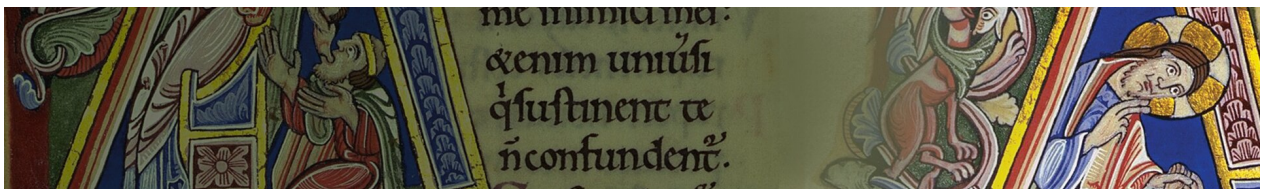 me inimici mei:
&enim uniu͛ſi
qͥ ſuſtinent te
n̄ confundent᷑.